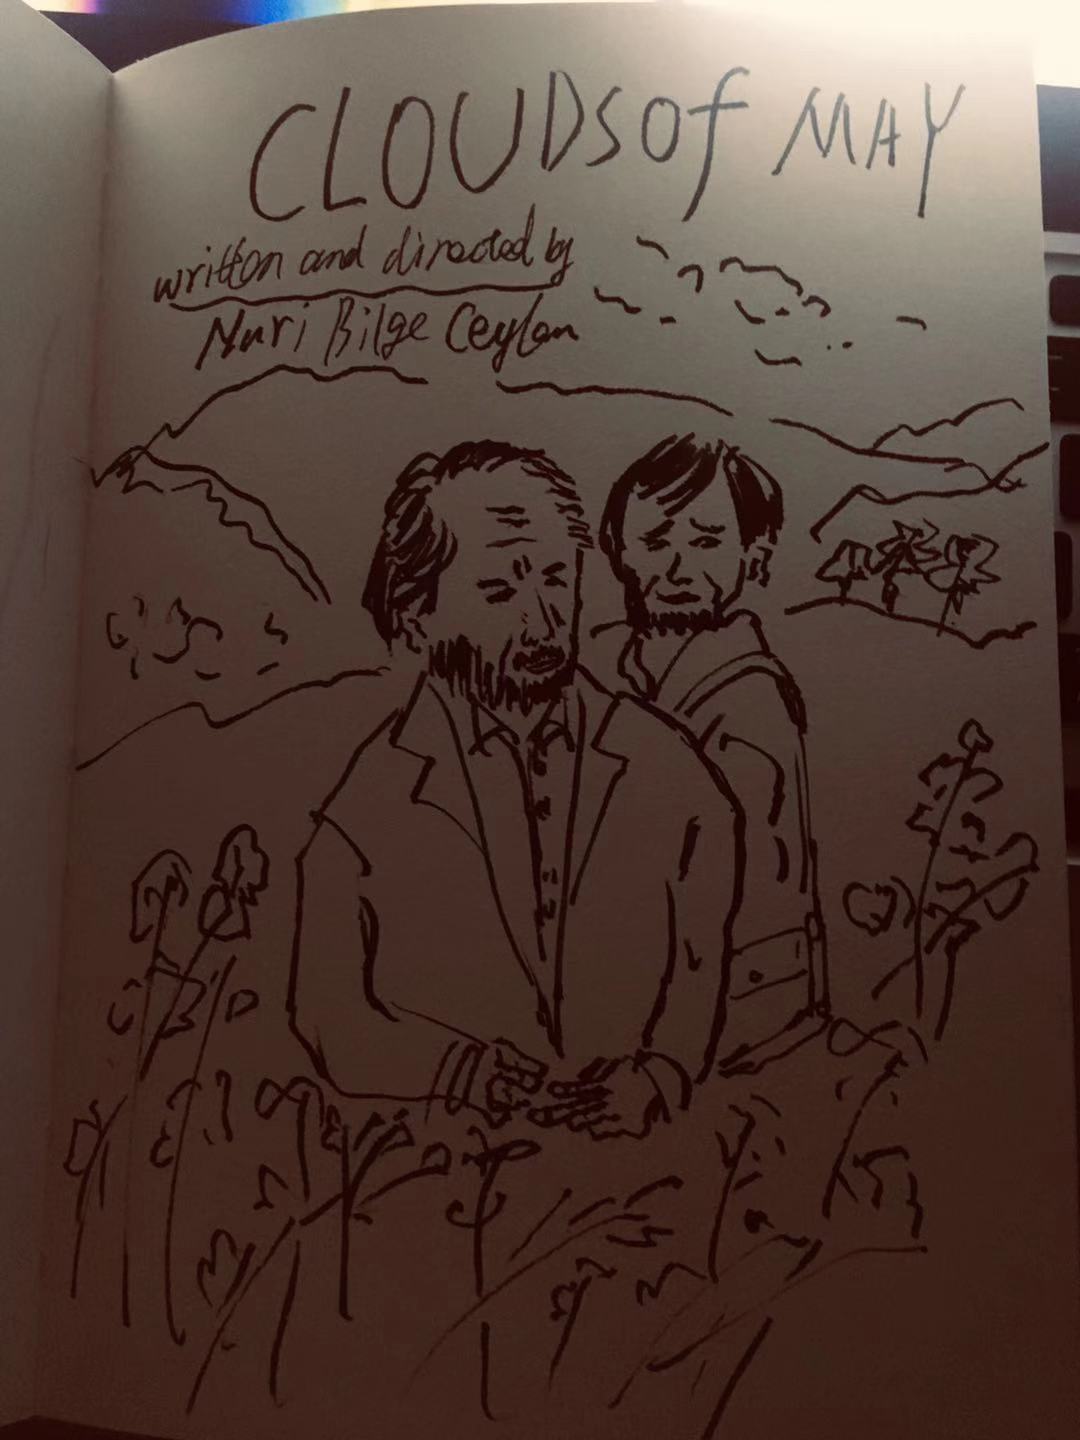 CLOUDS of MAY
written and directed by
Nuri Bilge Ceylan